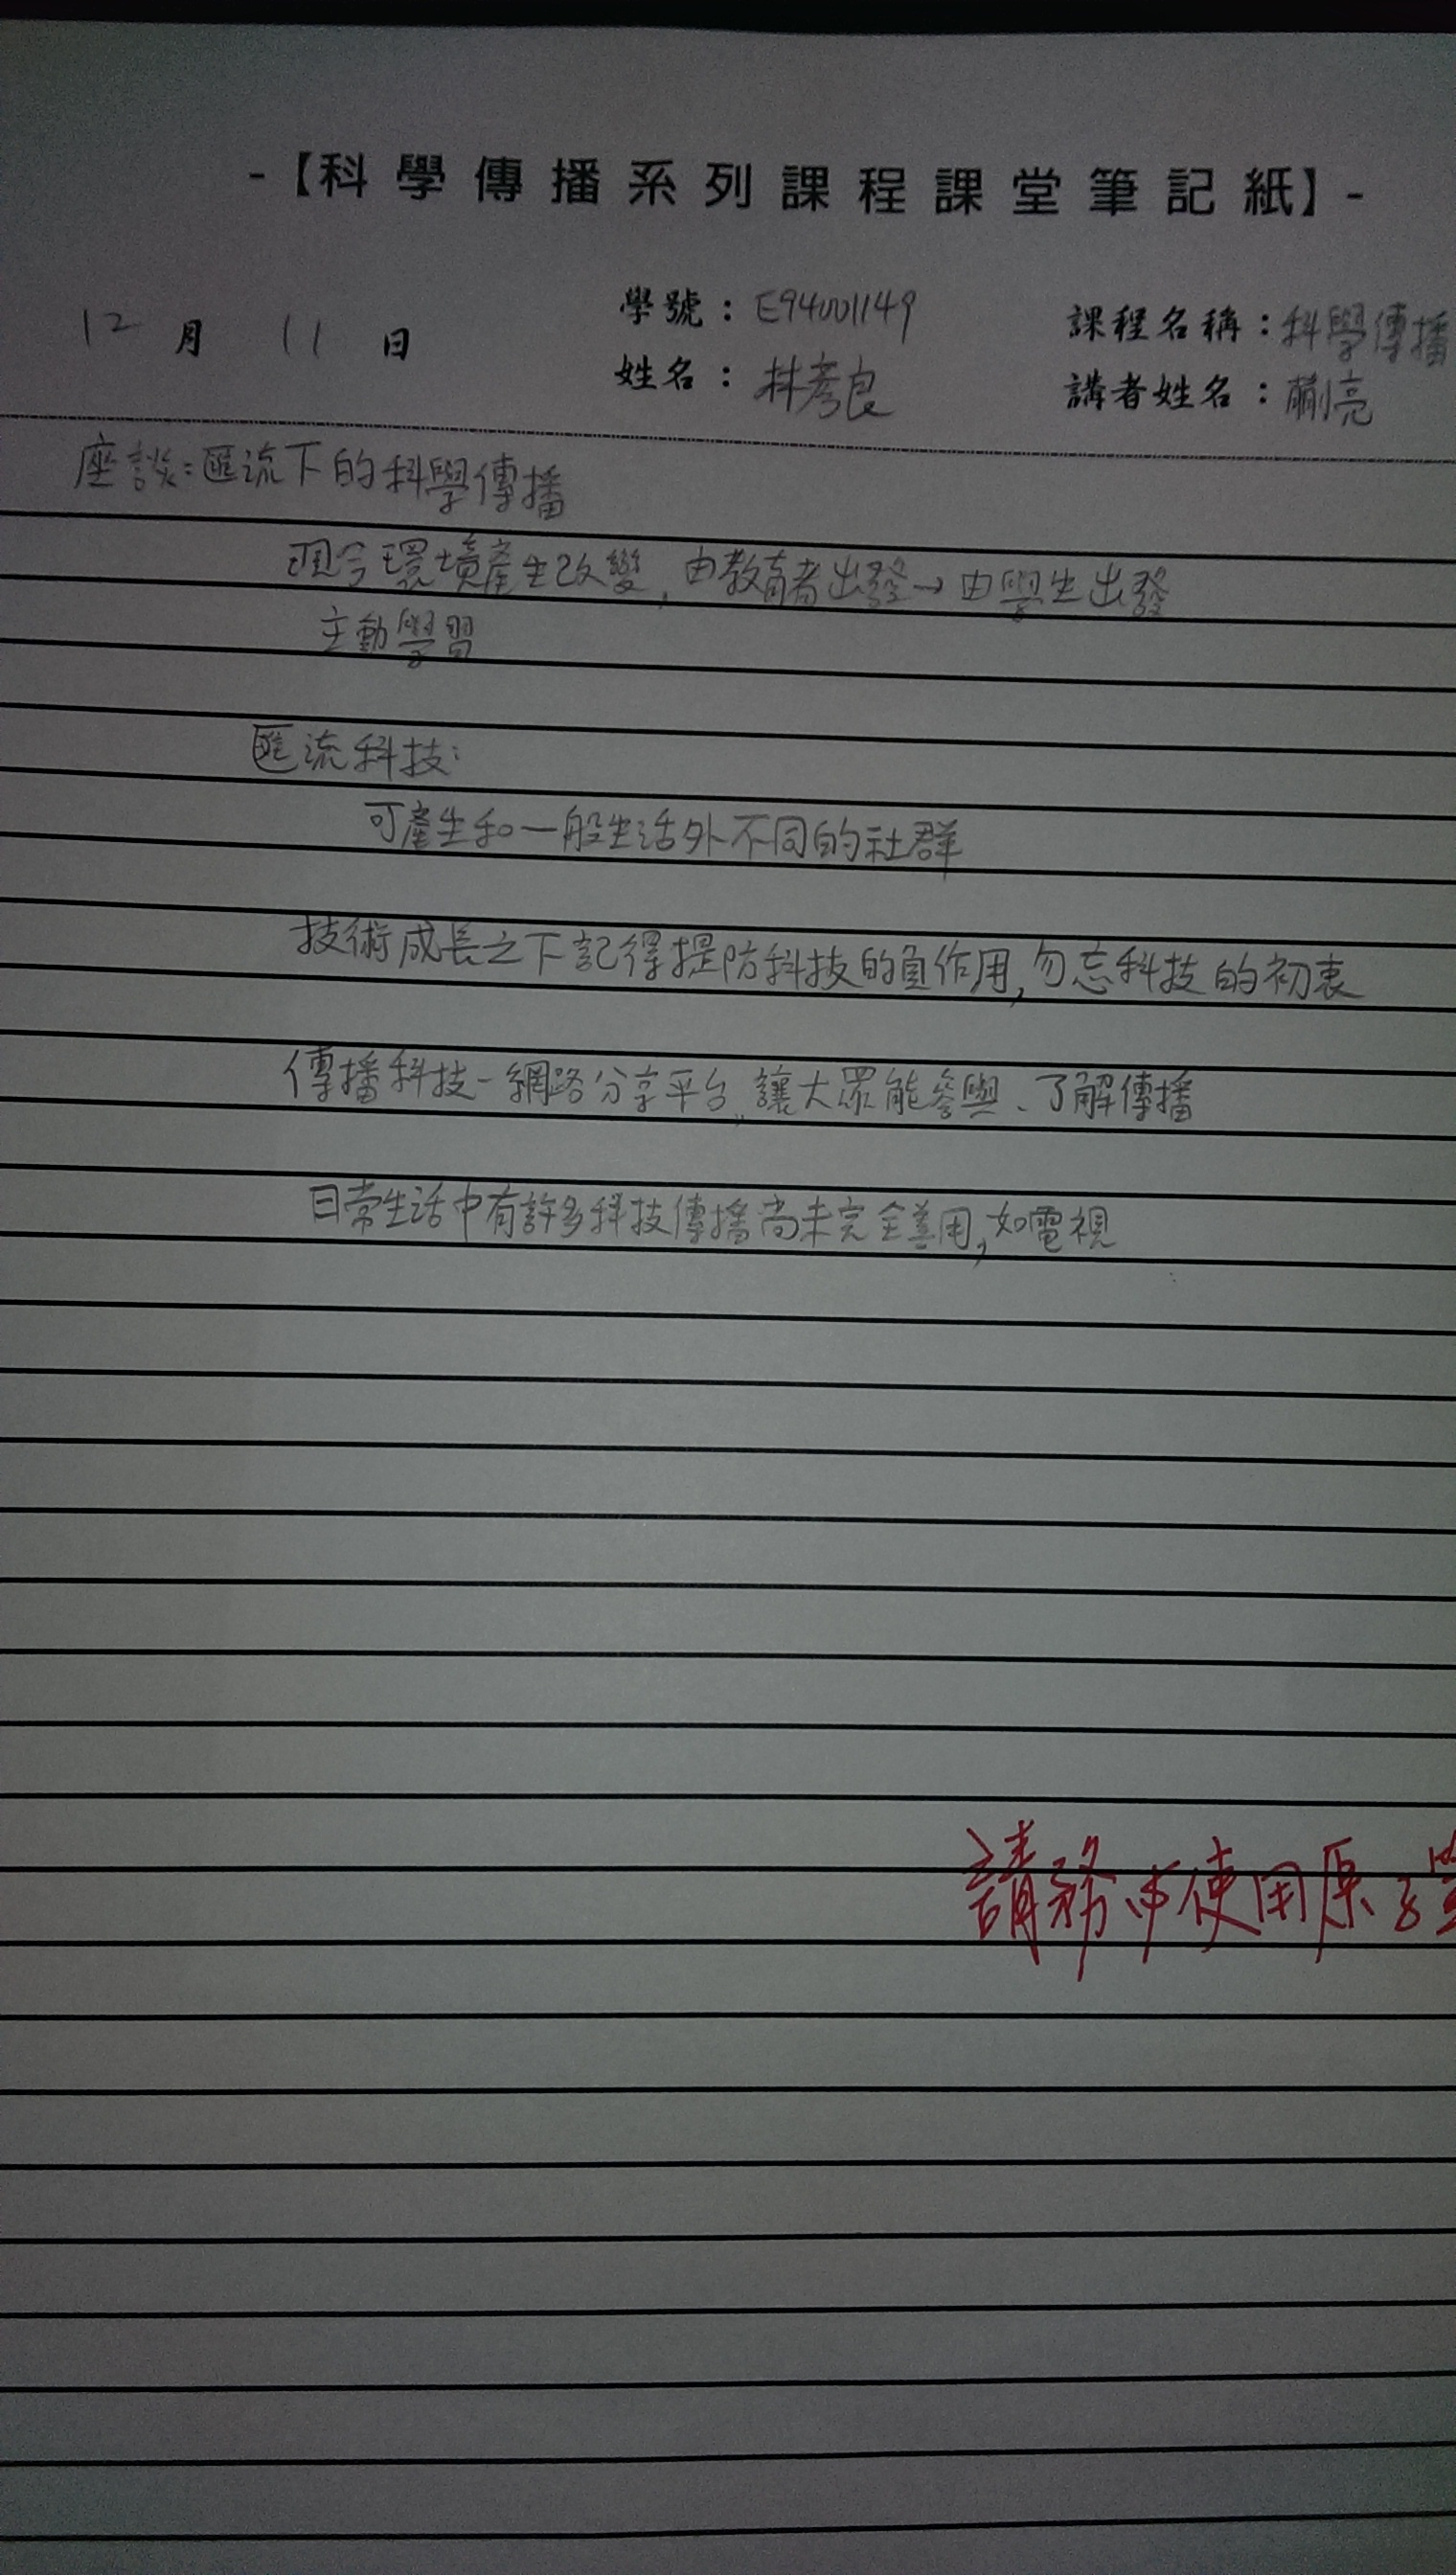 -【科學傳播系列課程課堂筆記紙】-
12月11日
學號：E94001149
課程名稱：科學傳播
姓名：林彥良
講者姓名：蕭亮
座談：匯流下的科學傳播
現今環境產生改變，由教育者出發→由學生出發
主動學習
匯流科技：
可產生和一般生活外不同的社群
技術成長之下記得提防科技的負作用，勿忘科技的初衷
傳播科技-網路分享平台，讓大眾能參與、了解傳播
日常生活中有許多科技傳播尚未完全善用，如電視
請務必使用原